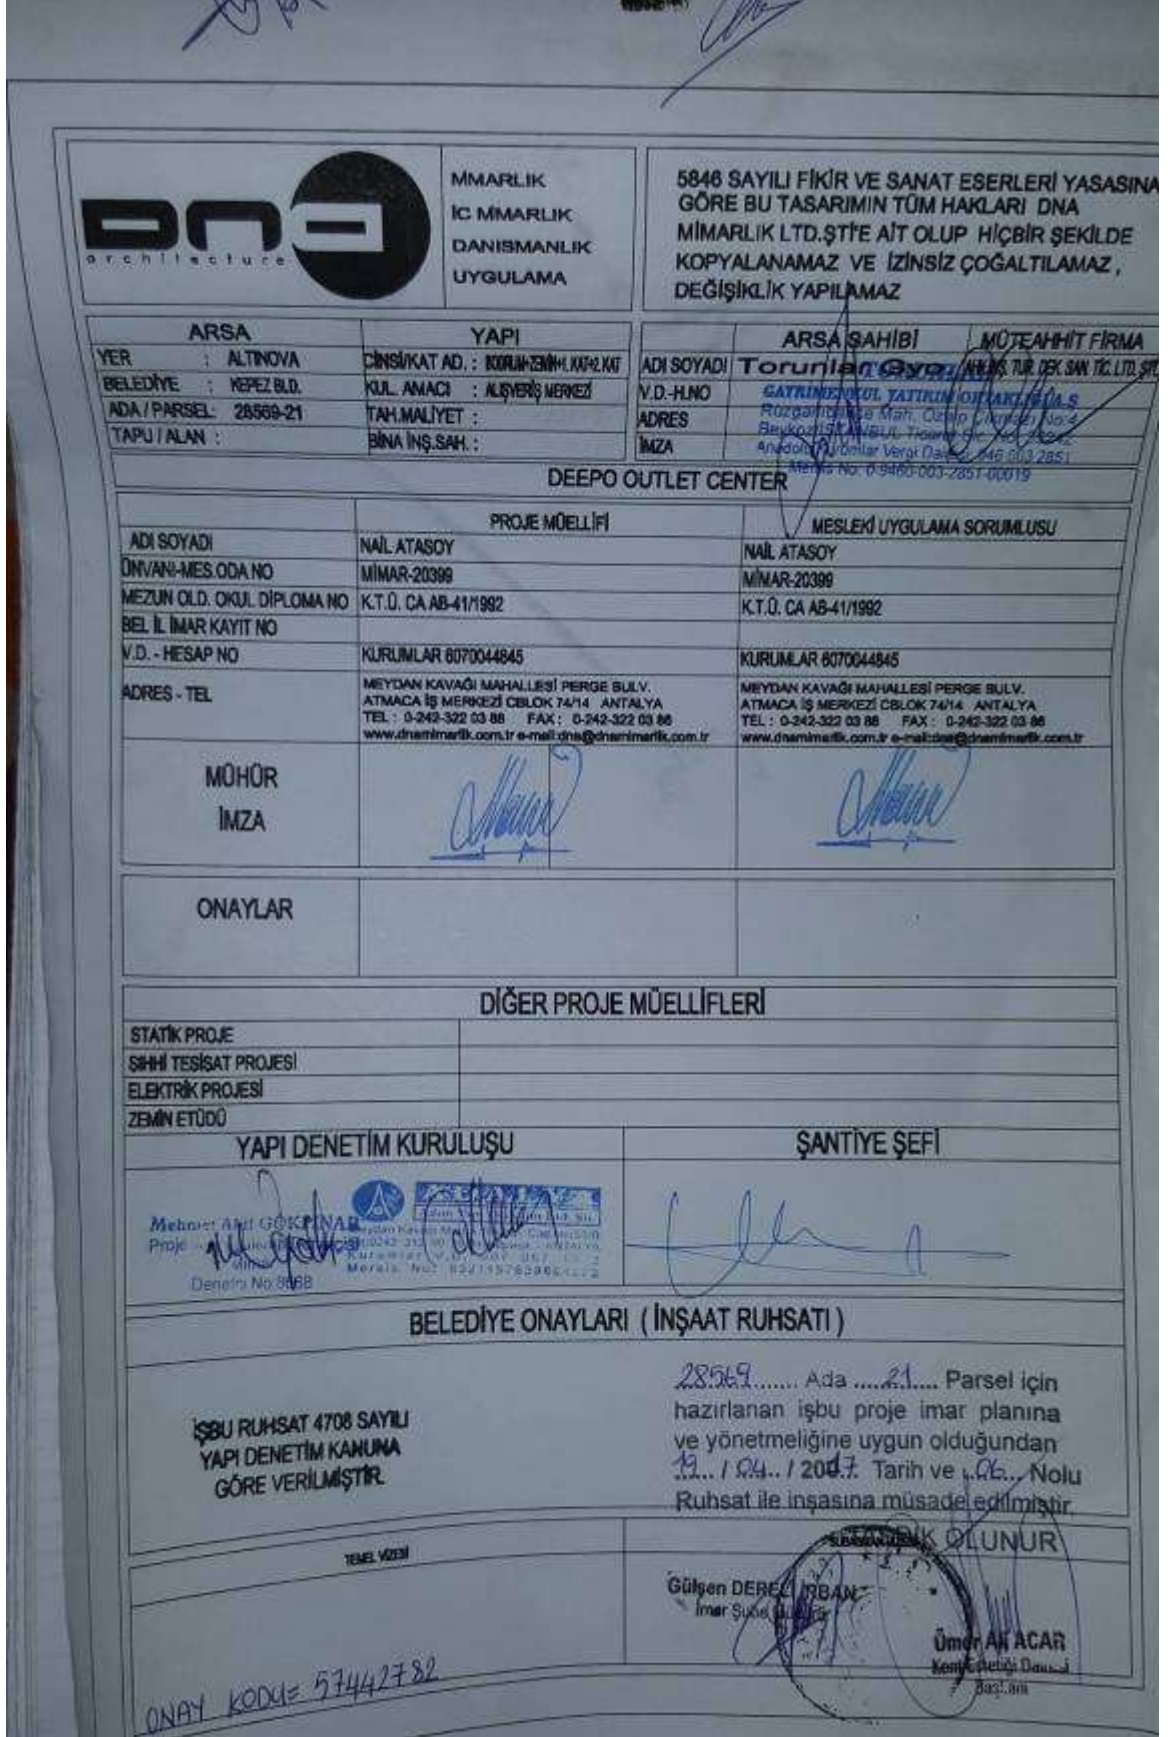 DNA
architecture
MMARLIK
IC MMARLIK
DANISMANLIK
UYGULAMA
5846 SAYILI FİKİR VE SANAT ESERLERİ YASASINA
GÖRE BU TASARIMIN TÜM HAKLARI DNA
MİMARLIK LTD.ŞTİ'E AİT OLUP HİÇBİR ŞEKİLDE
KOPYALANAMAZ VE İZİNSİZ ÇOĞALTILAMAZ,
DEĞİŞİKLİK YAPILAMAZ
ARSA YAPI
YER : ALTINOVA
BELEDİYE : KEPEZ BLD.
ADA / PARSEL: 28569-21
TAPU / ALAN :
CİNSİ/KAT AD. : BODRUM+ZEMİN+1.KAT+2.KAT
KUL. AMACI : ALIŞVERİŞ MERKEZİ
TAH.MALİYET :
BİNA İNŞ.SAH. :
ARSA SAHİBİ MÜTEAHHİT FİRMA
ADI SOYADI Torunlar Gyo TUR. DEK. SAN. TİC. LTD. ŞTİ.
V.D.-H.NO
ADRES
İMZA
GAYRİMENKUL YATIRIM ORTAKLIĞI A.Ş.
Mersis No: 0-9460-003-2851-00019
DEEPO OUTLET CENTER
PROJE MÜELLİFİ MESLEKİ UYGULAMA SORUMLUSU
ADI SOYADI NAİL ATASOY NAİL ATASOY
ÜNVANI-MES.ODA NO MİMAR-20399 MİMAR-20399
MEZUN OLD. OKUL DİPLOMA NO K.T.Ü. CA AB-41/1992 K.T.Ü. CA AB-41/1992
BEL İL İMAR KAYIT NO
V.D. - HESAP NO KURUMLAR 6070044845 KURUMLAR 6070044845
ADRES - TEL
MEYDAN KAVAĞI MAHALLESİ PERGE BULV.
ATMACA İŞ MERKEZİ CBLOK 74/14 ANTALYA
TEL : 0-242-322 03 88 FAX : 0-242-322 03 86
www.dnamimarlik.com.tr e-mail:dna@dnamimarlik.com.tr
MEYDAN KAVAĞI MAHALLESİ PERGE BULV.
ATMACA İŞ MERKEZİ CBLOK 74/14 ANTALYA
TEL : 0-242-322 03 88 FAX : 0-242-322 03 86
www.dnamimarlik.com.tr e-mail:dna@dnamimarlik.com.tr
MÜHÜR
İMZA
ONAYLAR
DİĞER PROJE MÜELLİFLERİ
STATİK PROJE
SIHHİ TESİSAT PROJESİ
ELEKTRİK PROJESİ
ZEMİN ETÜDÜ
YAPI DENETİM KURULUŞU ŞANTİYE ŞEFİ
Mehmet Akif GÖKPINAR
Proje
Mimar
Denetçi No:8668
BELEDİYE ONAYLARI ( İNŞAAT RUHSATI )
İŞBU RUHSAT 4708 SAYILI
YAPI DENETİM KANUNA
GÖRE VERİLMİŞTİR.
28569........ Ada .....21.... Parsel için
hazırlanan işbu proje imar planına
ve yönetmeliğine uygun olduğundan
19... / 04.. / 2017. Tarih ve ..06... Nolu
Ruhsat ile inşasına müsade edilmiştir.
TASDİK OLUNUR
TEMEL VİZESİ
Gülşen DERELİ
İmar Şube
Ömer AKACAR
Kent Estetiği Dairesi
Başkanı
ONAY KODU= 57442782